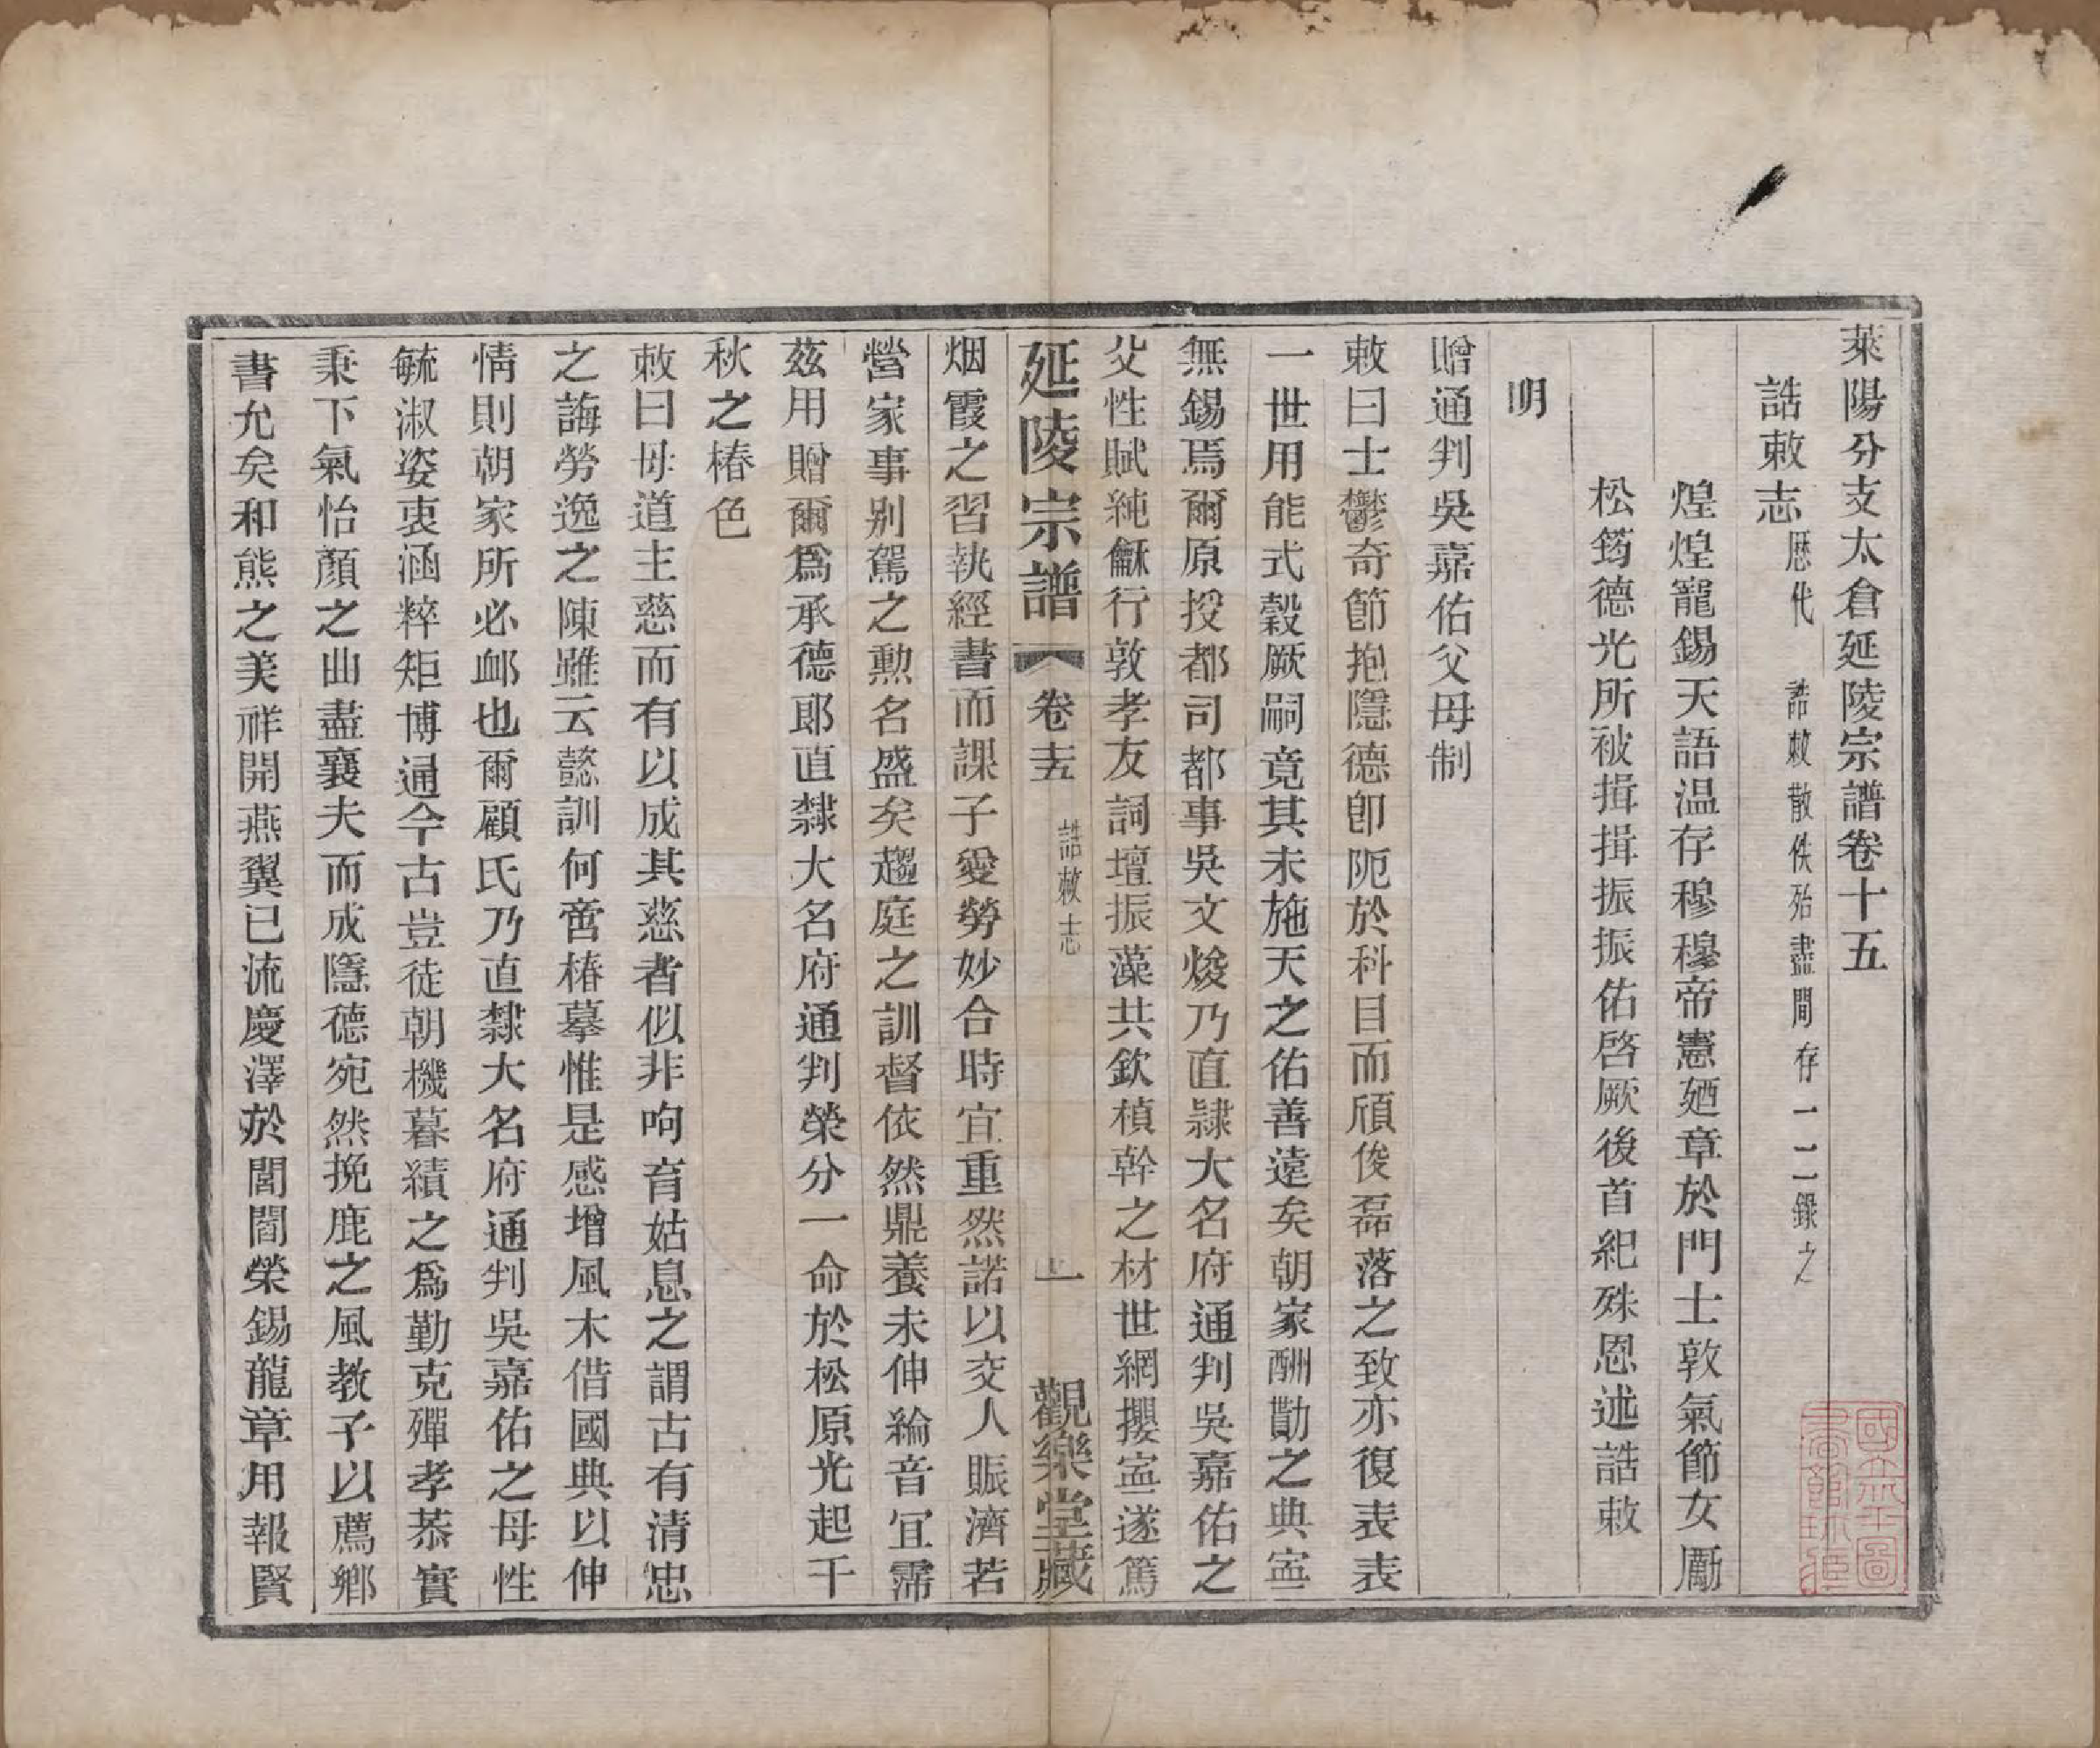 萊陽分支太倉延陵宗譜卷十五
誥敕志歷代誥敕散佚殆盡間存一二錄之
煌煌寵錫天語温存穆穆帝憲廼章於門士敦氣節女勵
松筠德光所被揖揖振振佑啓厥後首紀殊恩述誥敕
明
贈通判吳嘉佑父母制
敕曰士鬱奇節抱隱德卽阨於科目而頎俊磊落之致亦復表表
一世用能式穀厥嗣竟其未施天之佑善遠矣朝家酬勩之典寍
無錫焉爾原授都司都事吳文煥乃直隸大名府通判吳嘉佑之
父性賦純龢行敦孝友詞壇振藻共欽楨幹之材世網攖寍遂篤
延陵宗譜
卷十五
誥敕志
一
觀樂堂藏
烟霞之習執經書而課子愛勞妙合時宜重然諾以交人賑濟若
營家事别駕之勲名盛矣趨庭之訓督依然鼎養未伸綸音冝霈
茲用贈爾爲承德郎直隸大名府通判榮分一命於松原光起千
秋之椿色
敕曰母道主慈而有以成其慈者似非呴育姑息之謂古有清忠
之誨勞逸之陳雖云懿訓何啻椿摹惟是感增風木借國典以伸
情則朝家所必衈也爾顧氏乃直隸大名府通判吳嘉佑之母性
毓淑姿衷涵粹矩博通今古豈徒朝機暮績之爲勤克殫孝恭實
秉下氣怡顏之曲盡襄夫而成隱德宛然挽鹿之風教子以薦鄉
書允矣和熊之美祥開燕翼已流慶澤於閭閻榮錫龍章用報賢